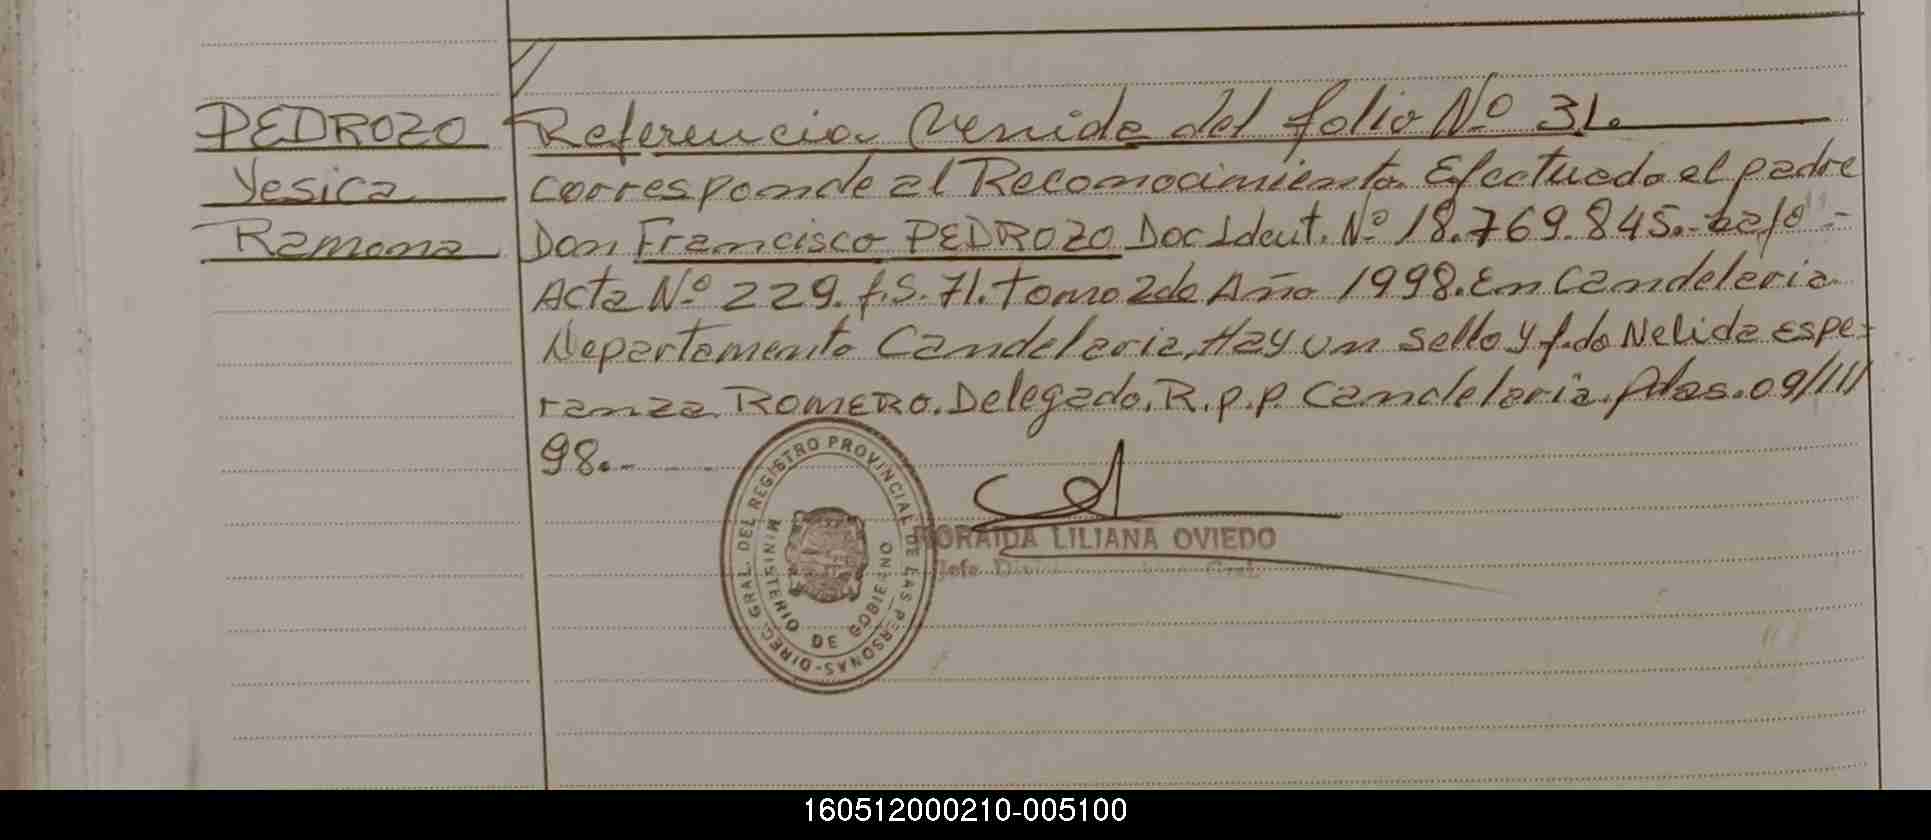 PEDROZO
Yesica
Ramona
Referencia Venida del folio Nº 31.
corresponde al Reconocimiento Efectuado el padre
Don Francisco PEDROZO Doc Ident. Nº 18.769.845.- bajo -
Acta Nº 229. f.S. 71. tomo 2do Año 1998. En Candelaria
Departamento Candelaria, Hay un sello y f.do Nelida Espe-
ranza ROMERO. Delegado. R.p.p. Candelaria. Pdas. 09/11/
98.-
DIREC. GRAL. DEL REGISTRO PROVINCIAL DE LAS PERSONAS-
MINISTERIO DE GOBIERNO
ZORAIDA LILIANA OVIEDO
Jefe Gral.
160512000210-005100